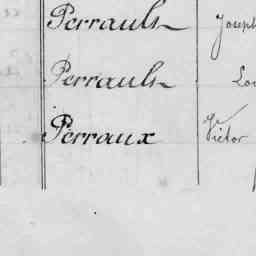 Perrault Joseph
Perrault
Perraux Victor